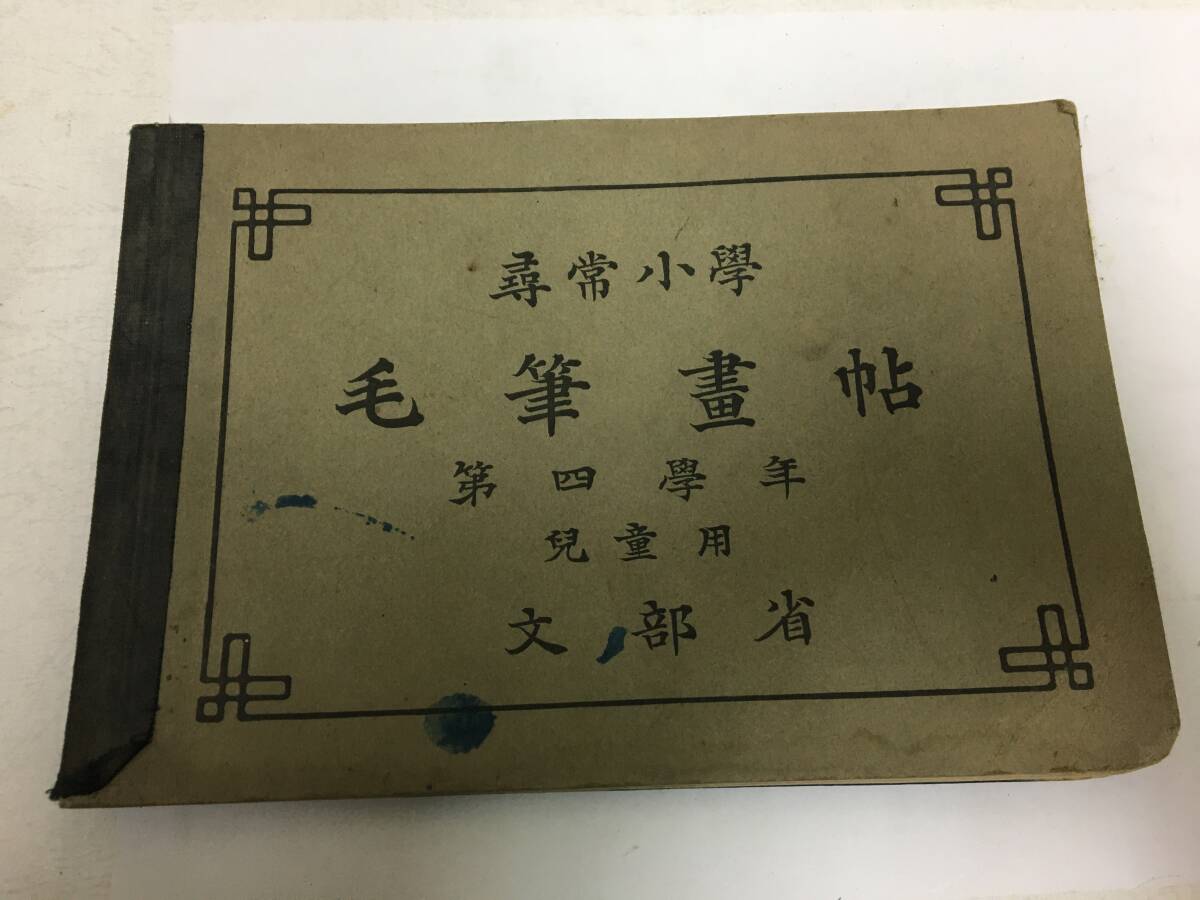 尋常小學
毛筆畫帖
第四學年
兒童用
文部省